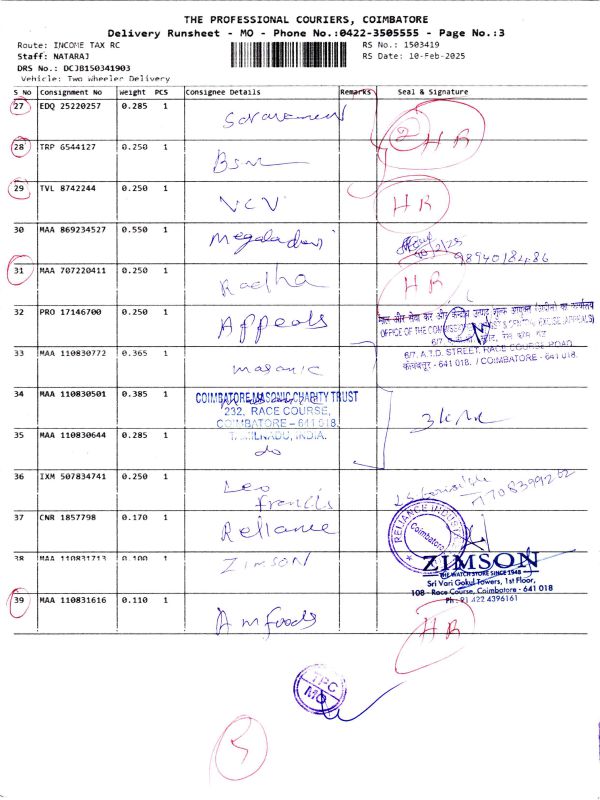 THE PROFESSIONAL COURIERS, COIMBATORE
Delivery Runsheet - MO - Phone No.:0422-3505555 - Page No.:3
Route: INCOME TAX RC
RS No.: 1503419
Staff: NATARAJ
RS Date: 10-Feb-2025
DRS No.: DCJB150341903
Vehicle: Two Wheeler Delivery
S No Consignment No Weight PCS Consignee Details Remarks Seal & Signature
27 EDQ 25220257 0.285 1
2 HR
28 TRP 6544127 0.250 1 Bsm
29 TVL 8742244 0.250 1 VCV HR
30 MAA 869234527 0.550 1 Megaladevi
10/2/25
9894018486
31 MAA 707220411 0.250 1 Radha HR
32 PRO 17146700 0.250 1 Appeals
OFFICE OF THE & CENTRAL EXCISE (APPEALS)
6/7, A.T.D. STREET, RACE COURSE ROAD
कोयंबत्तूर - 641 018. / COIMBATORE - 641 018.
33 MAA 110830772 0.365 1 masonic
34 MAA 110830501 0.385 1
COIMBATORE MASONIC CHARITY TRUST
232, RACE COURSE,
COIMBATORE – 641 018
TAMILNADU, INDIA.
35 MAA 110830644 0.285 1 do
36 IXM 507834741 0.250 1 Leo
Francis
7708399262
37 CNR 1857798 0.170 1 Reliance
RELIANCE INDUST
Coimbatore
38 MAA 110831713 0.100 1 ZIMSON
ZIMSON
THE WATCH STORE SINCE 1948
Sri Vari Gokul Towers, 1st Floor,
108 - Race Course, Coimbatore - 641 018
Ph : 91 422 4396161
39 MAA 110831616 0.110 1 Am foods HR
TPC
MO
5